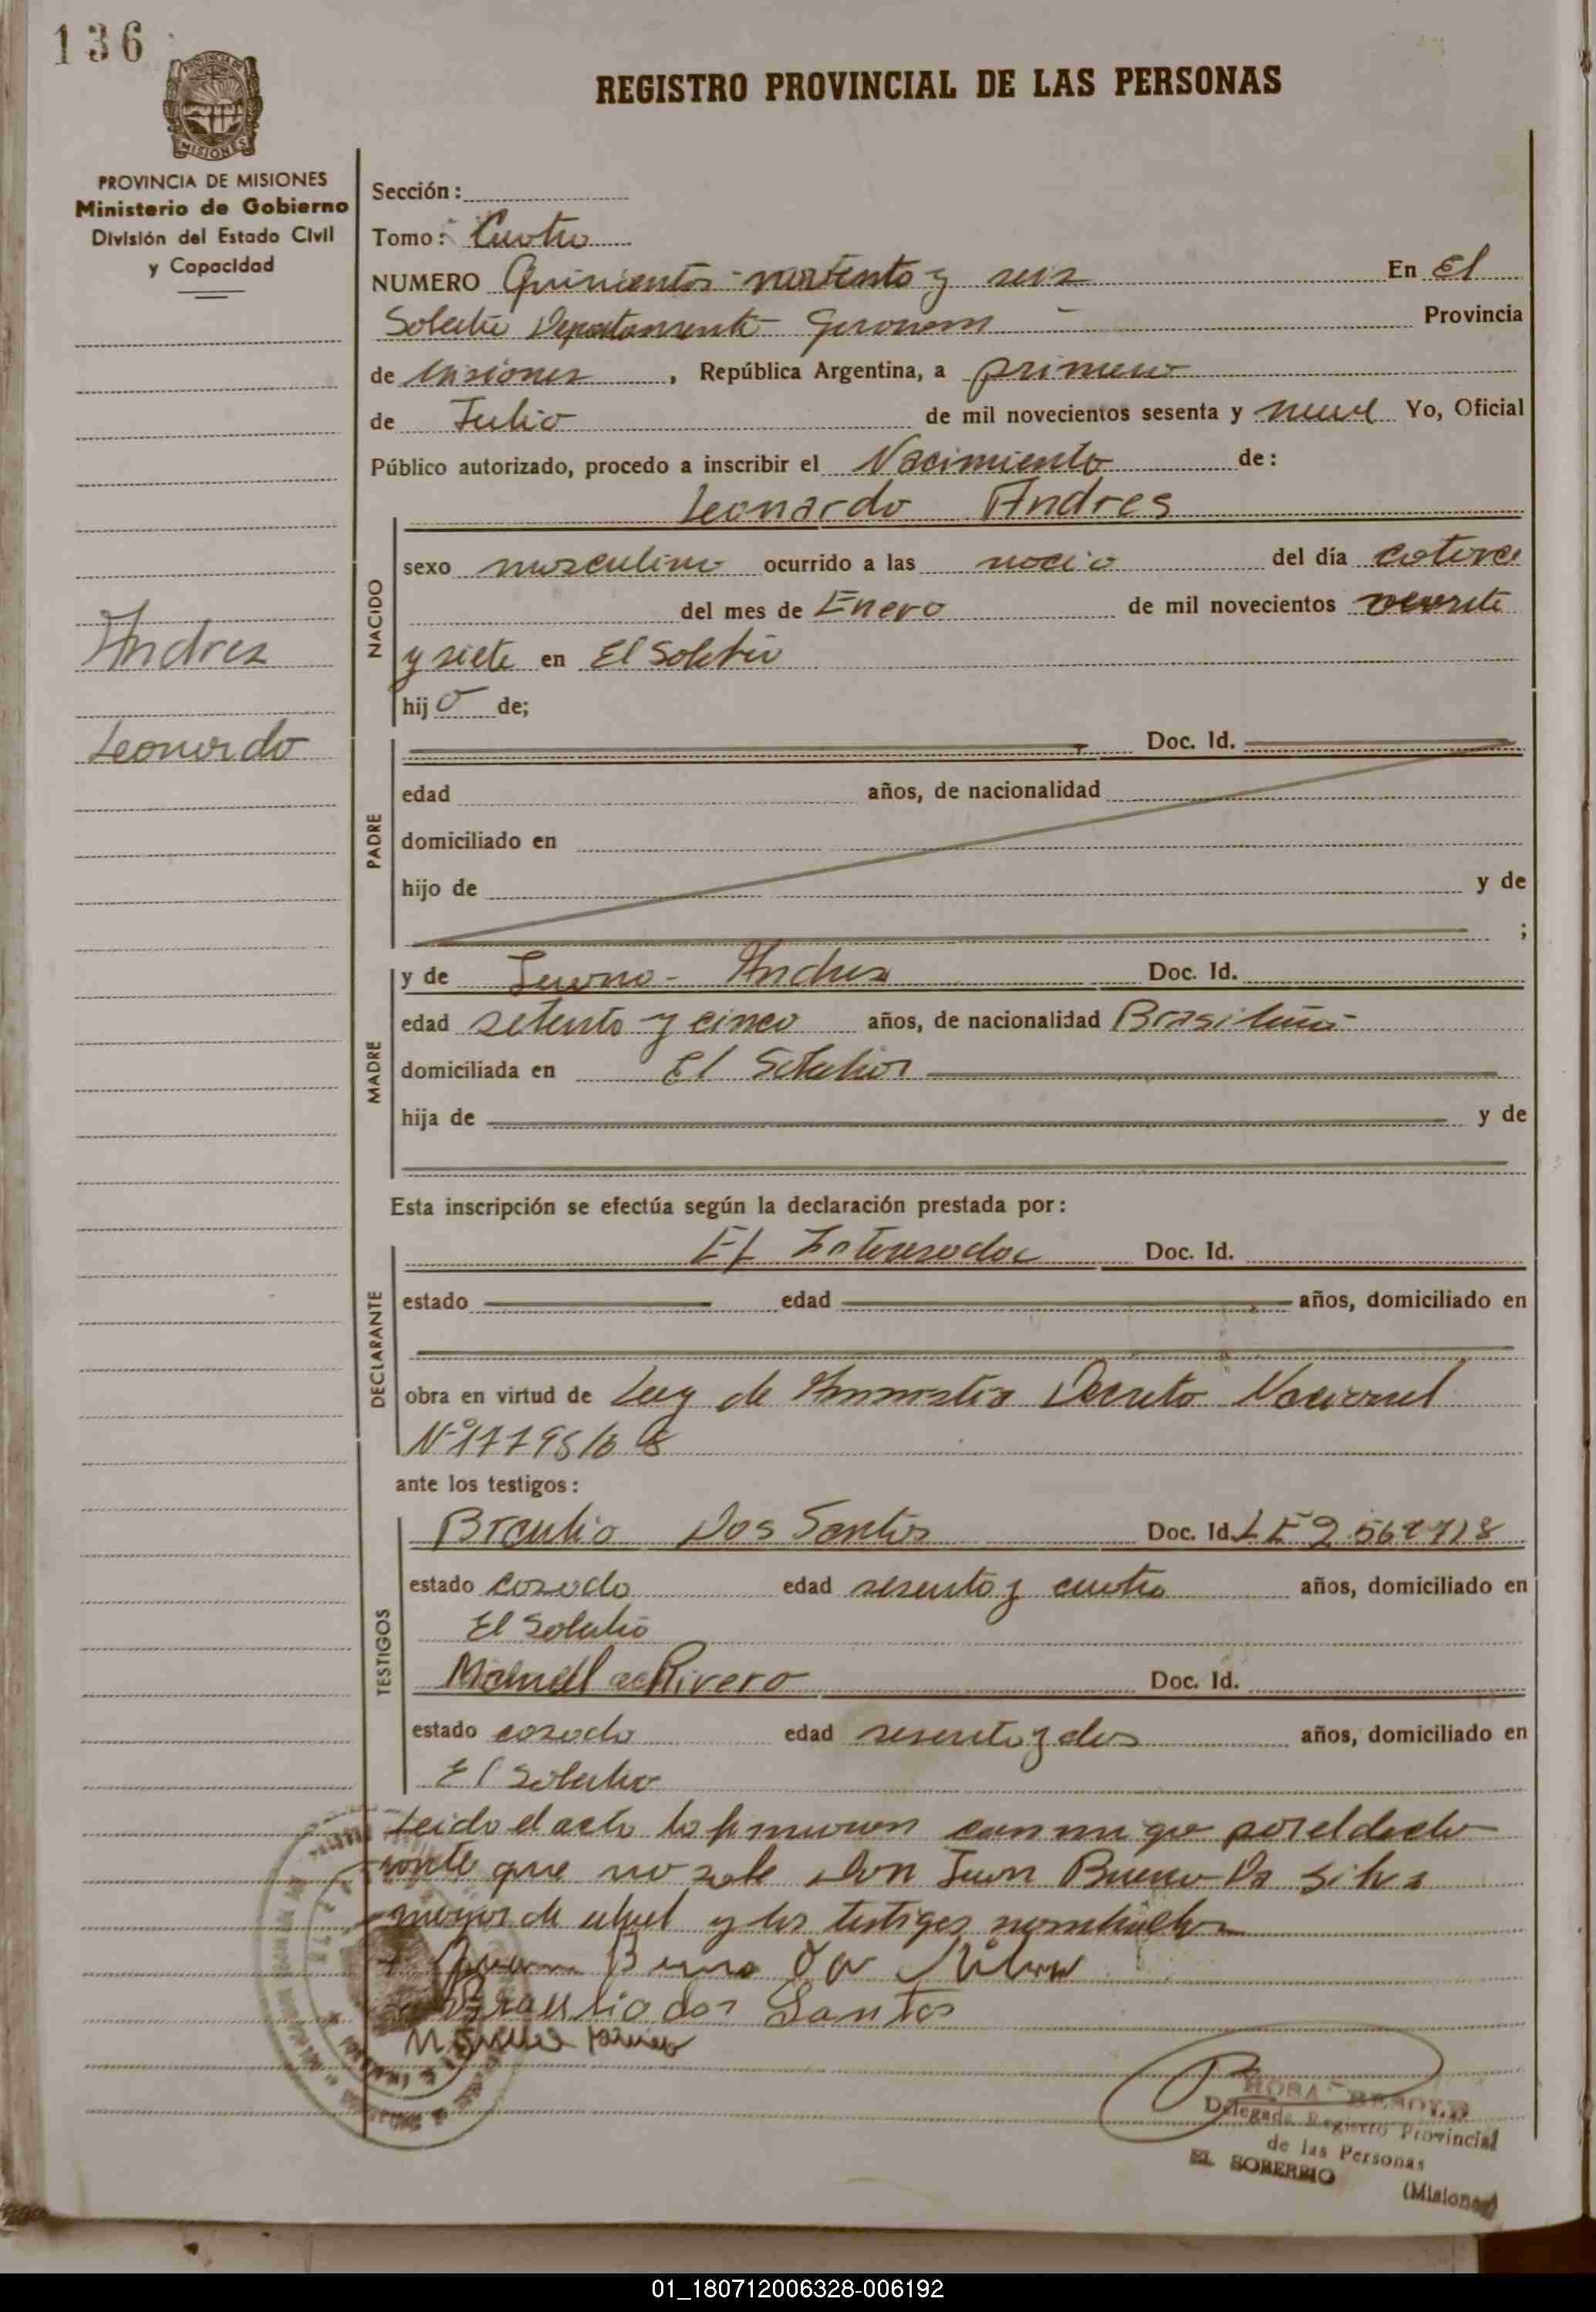 136
MISIONES
REGISTRO PROVINCIAL DE LAS PERSONAS
PROVINCIA DE MISIONES
Ministerio de Gobierno
División del Estado Civil
y Capacidad
Sección:
Tomo: Cuatro
NUMERO Quinientos y seis En El
Departamento Provincia
de Misiones, República Argentina, a primero
de Julio de mil novecientos sesenta y nueve Yo, Oficial
Público autorizado, procedo a inscribir el Nacimiento de:
Leonardo Andres
NACIDO
sexo masculino ocurrido a las del día catorce
del mes de Enero de mil novecientos
y siete en El
hijo de;
Andres
Leonardo
PADRE
Doc. Id.
edad años, de nacionalidad
domiciliado en
hijo de y de
;
MADRE
y de Andres Doc. Id.
edad setenta y cinco años, de nacionalidad Brasileña
domiciliada en El
hija de y de
Esta inscripción se efectúa según la declaración prestada por:
DECLARANTE
El Interesado Doc. Id.
estado edad años, domiciliado en
obra en virtud de Ley de Decreto Nacional
Nº
ante los testigos:
TESTIGOS
Braulio Dos Santos Doc. Id. LE
estado casado edad sesenta y cuatro años, domiciliado en
El
Manuel Rivero Doc. Id.
estado casado edad sesenta y dos años, domiciliado en
El
Leido el acta la firmaron conmigo por el decla
rante que no sabe Don Juan Bueno Da Silva
mayor de edad y los testigos nombrados
Juan Bueno da Silva
Braulio dos Santos
ROSA BESOLD
Delegada Registro Provincial
de las Personas
EL SOBERBIO (Misiones)
01_180712006328-006192